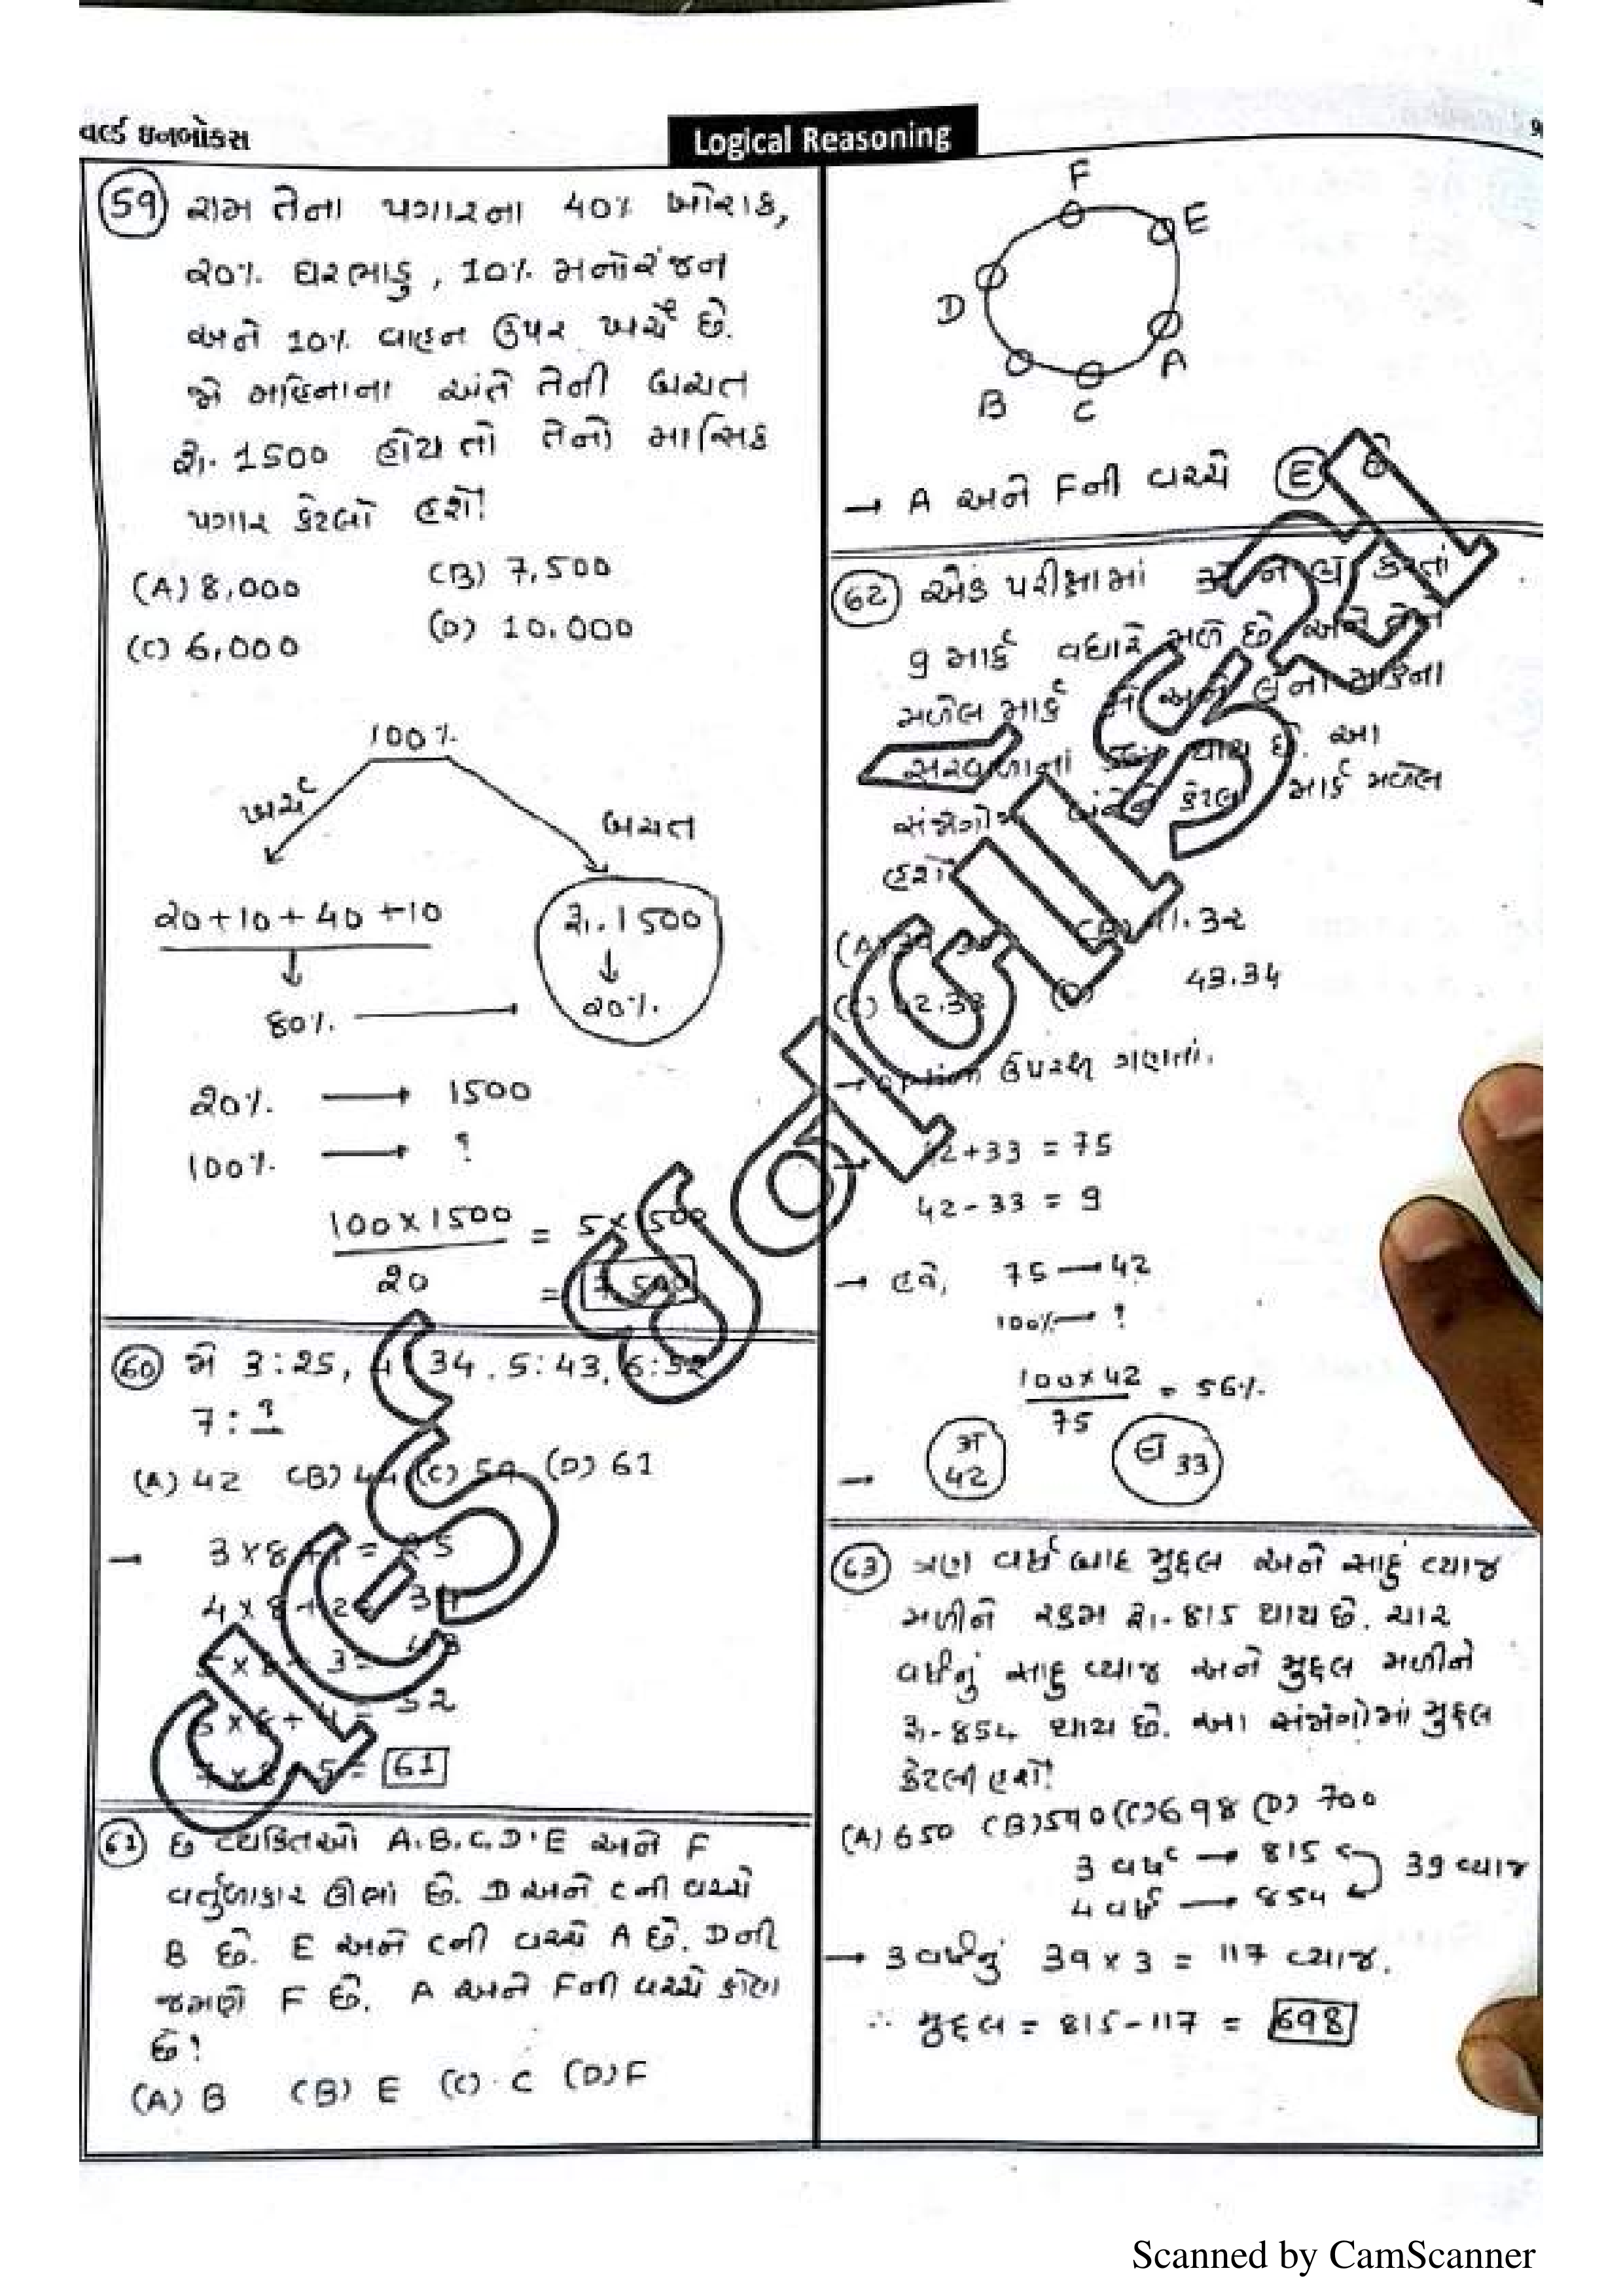 વર્લ્ડ ઇનબોક્સ
Logical Reasoning
59 રામ તેના પગારના 40% ખોરાક,
20% ઘરભાડુ, 10% મનોરંજન
અને 10% વાહન ઉપર ખર્ચે છે.
જો મહિનાના અંતે તેની બચત
રૂા. 1500 હોય તો તેનો માસિક
પગાર કેટલો હશે?
(A) 8,000 (B) 7,500
(C) 6,000 (D) 10,000
100%
ખર્ચ બચત
20+10+40+10 રૂા. 1500
↓ ↓
80% 20%
20% → 1500
100% → ?
100 x 1500 / 20 = 5 x 1500
= 7500
60 જો 3:25, 4:34, 5:43, 6:52
7:?
(A) 42 (B) 44 (C) 59 (D) 61
→ 3 x 8 + 1 = 25
4 x 8 + 2 = 34
5 x 8 + 3 = 43
x 8 + 4 = 52
7 x 8 + 5 = 61
61 છ વ્યકિતઓ A, B, C, D, E અને F
વર્તુળાકાર ઊભા છે. D અને C ની વચ્ચે
B છે. E અને C ની વચ્ચે A છે. D ની
જમણે F છે. A અને F ની વચ્ચે કોણ
છે?
(A) B (B) E (C) C (D) F
F
E
D
A
B
C
→ A અને F ની વચ્ચે E છે
62 એક પરીક્ષામાં અ ને બ કરતાં
9 માર્ક વધારે મળે છે અને તેને
મળેલ માર્ક અને બના માર્કના
સરવાળાનાં થાય છે. આ
કેટલા માર્ક મળેલ
હશે
(A) 41.32
(C) 42.33 (D) 43.34
→ option ઉપરથી ગણતાં.
→ 42+33 = 75
42-33 = 9
→ હવે, 75 → 42
100% → ?
100 x 42 / 75 = 56%
→ અ 42 બ 33
63 ત્રણ વર્ષ બાદ મુદ્દલ અને સાદું વ્યાજ
મળીને રકમ રૂા. 815 થાય છે. ચાર
વર્ષનું સાદુ વ્યાજ અને મુદ્દલ મળીને
રૂા. 854 થાય છે. આ સંજોગોમાં મુદ્દલ
કેટલી હશે?
(A) 650 (B) 590 (C) 698 (D) 700
3 વર્ષ → 815
4 વર્ષ → 854 39 વ્યાજ
→ 3 વર્ષનું 39 x 3 = 117 વ્યાજ.
∴ મુદ્દલ = 815-117 = 698
Scanned by CamScanner